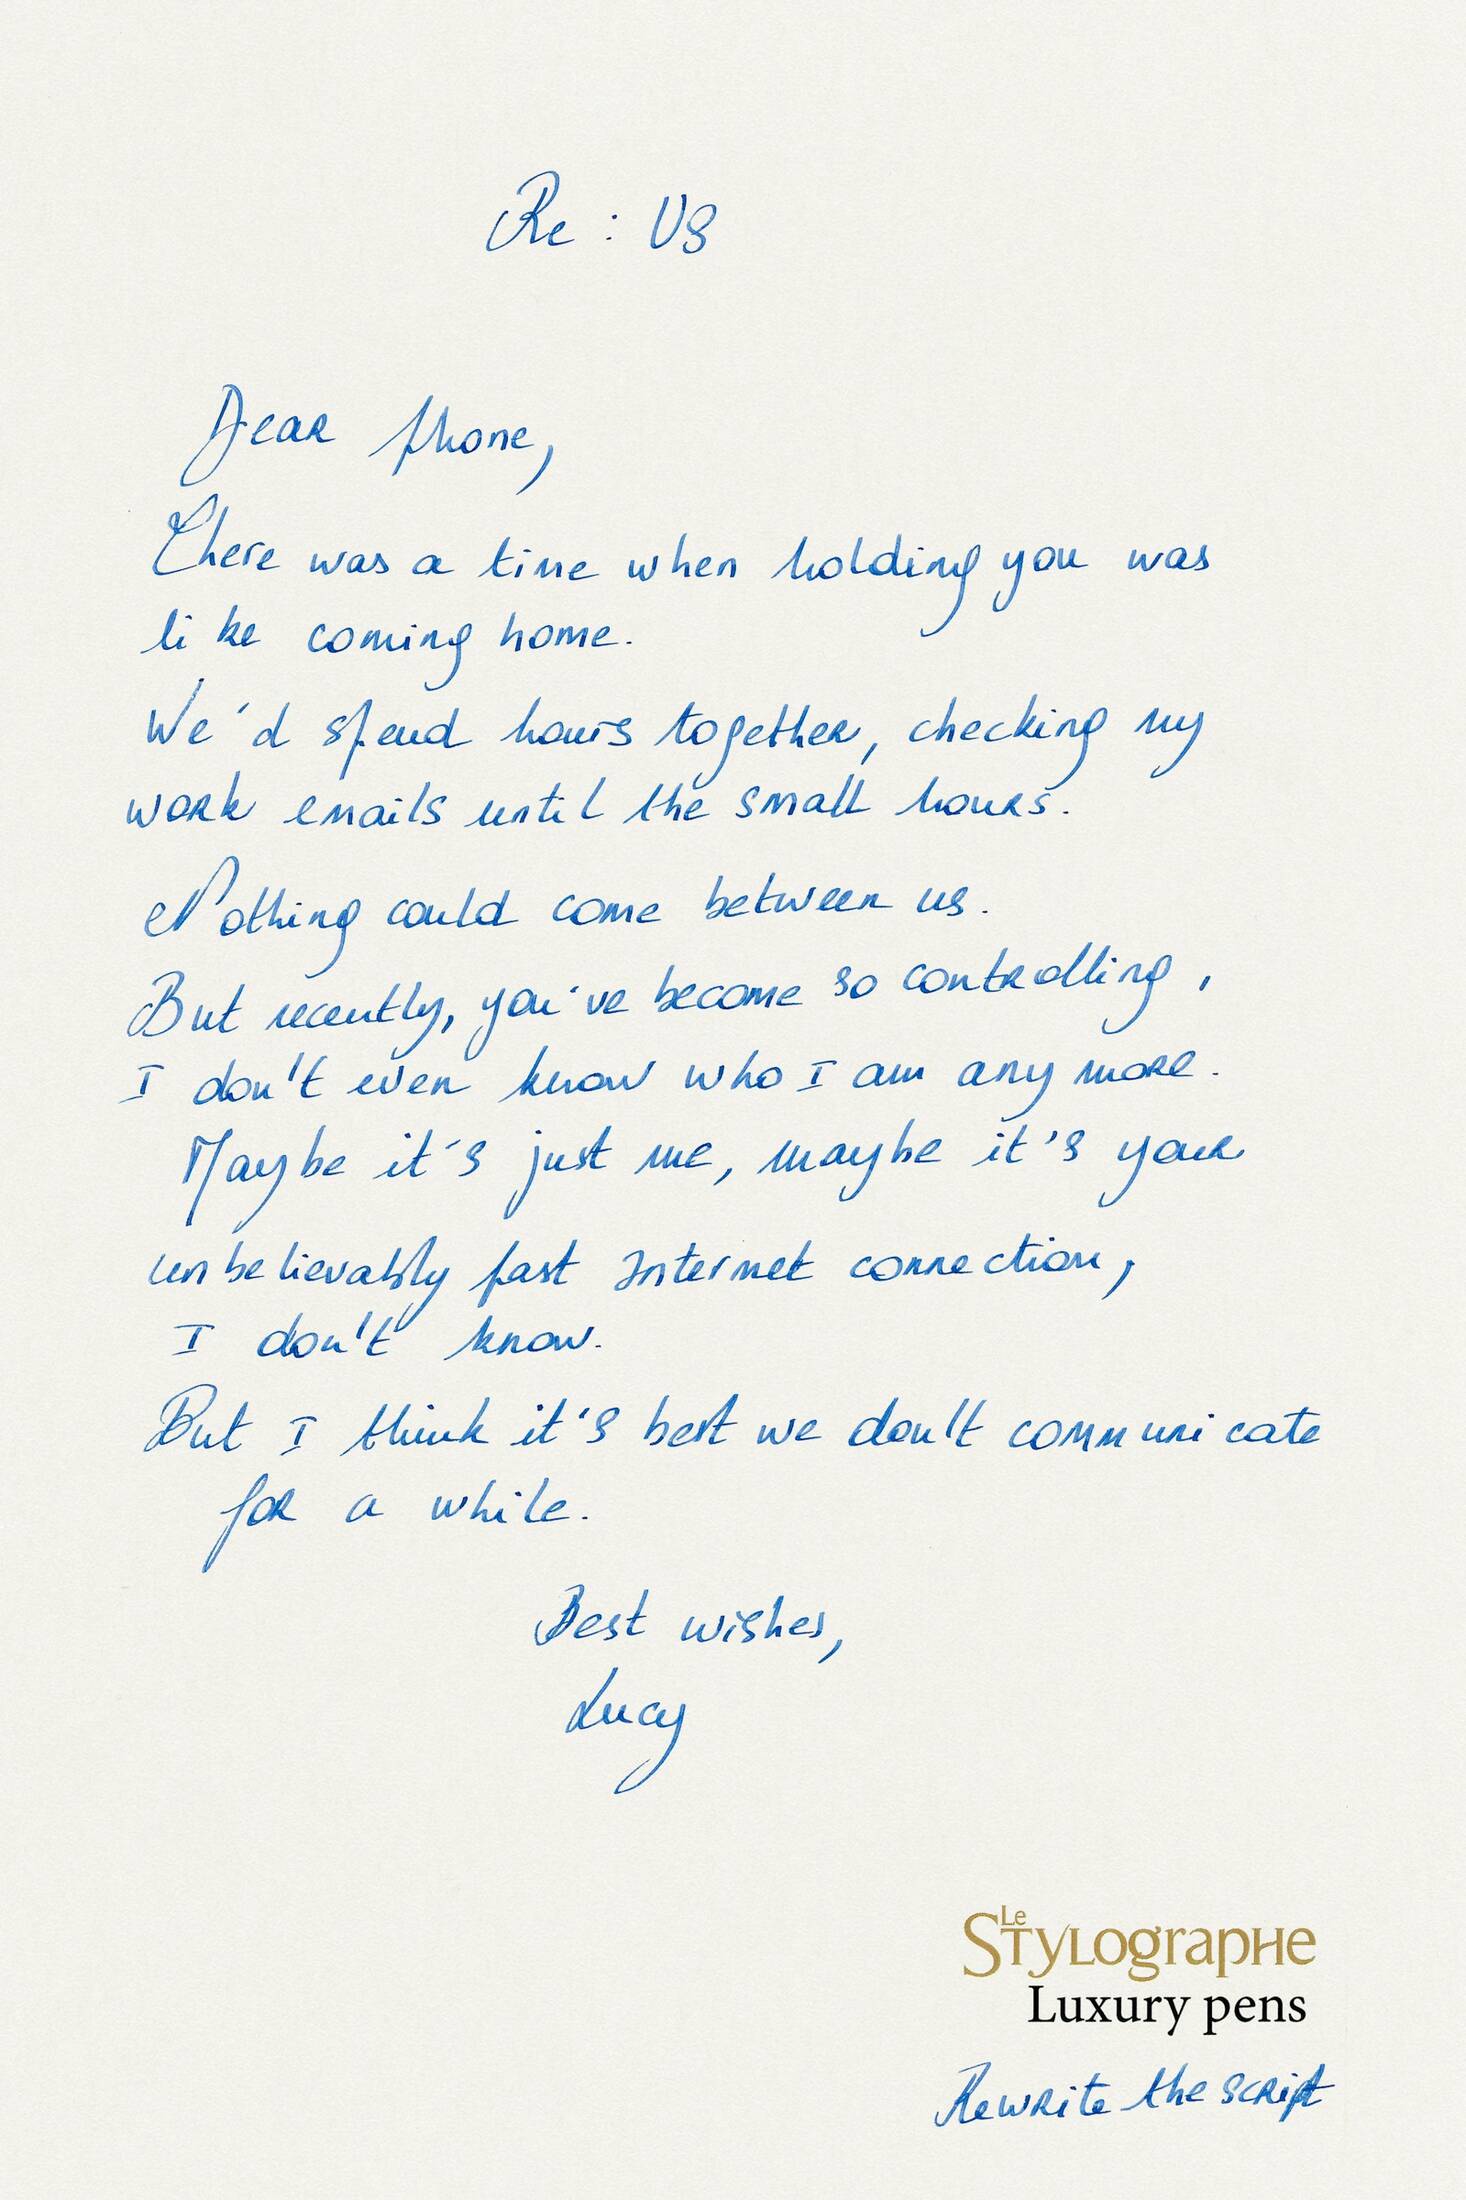 Re : US
Dear Phone,
There was a time when holding you was
like coming home.
We'd spend hours together, checking my
work emails until the small hours.
Nothing could come between us.
But recently, you've become so controlling,
I don't even know who I am any more.
Maybe it's just me, maybe it's your
unbelievably fast Internet connection,
I don't know.
But I think it's best we don't communicate
for a while.
Best wishes,
Lucy
Le Stylographe
Luxury pens
Rewrite the script